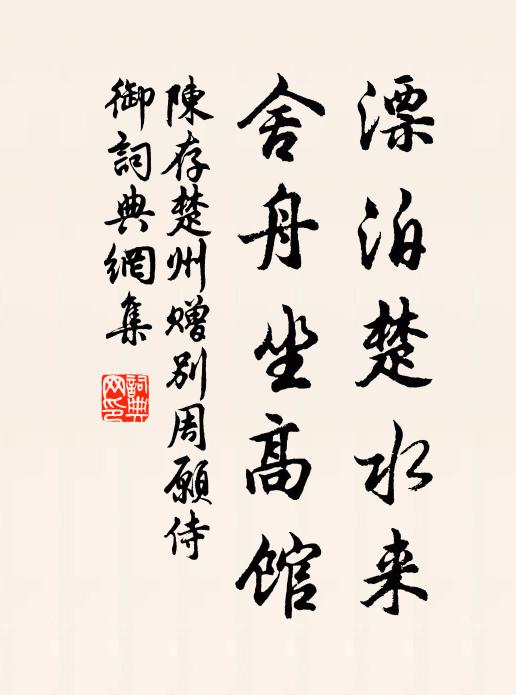 漂泊楚水来
舍舟坐高馆
陳存楚州赠别周願侍
御詞典網集
詞典网印